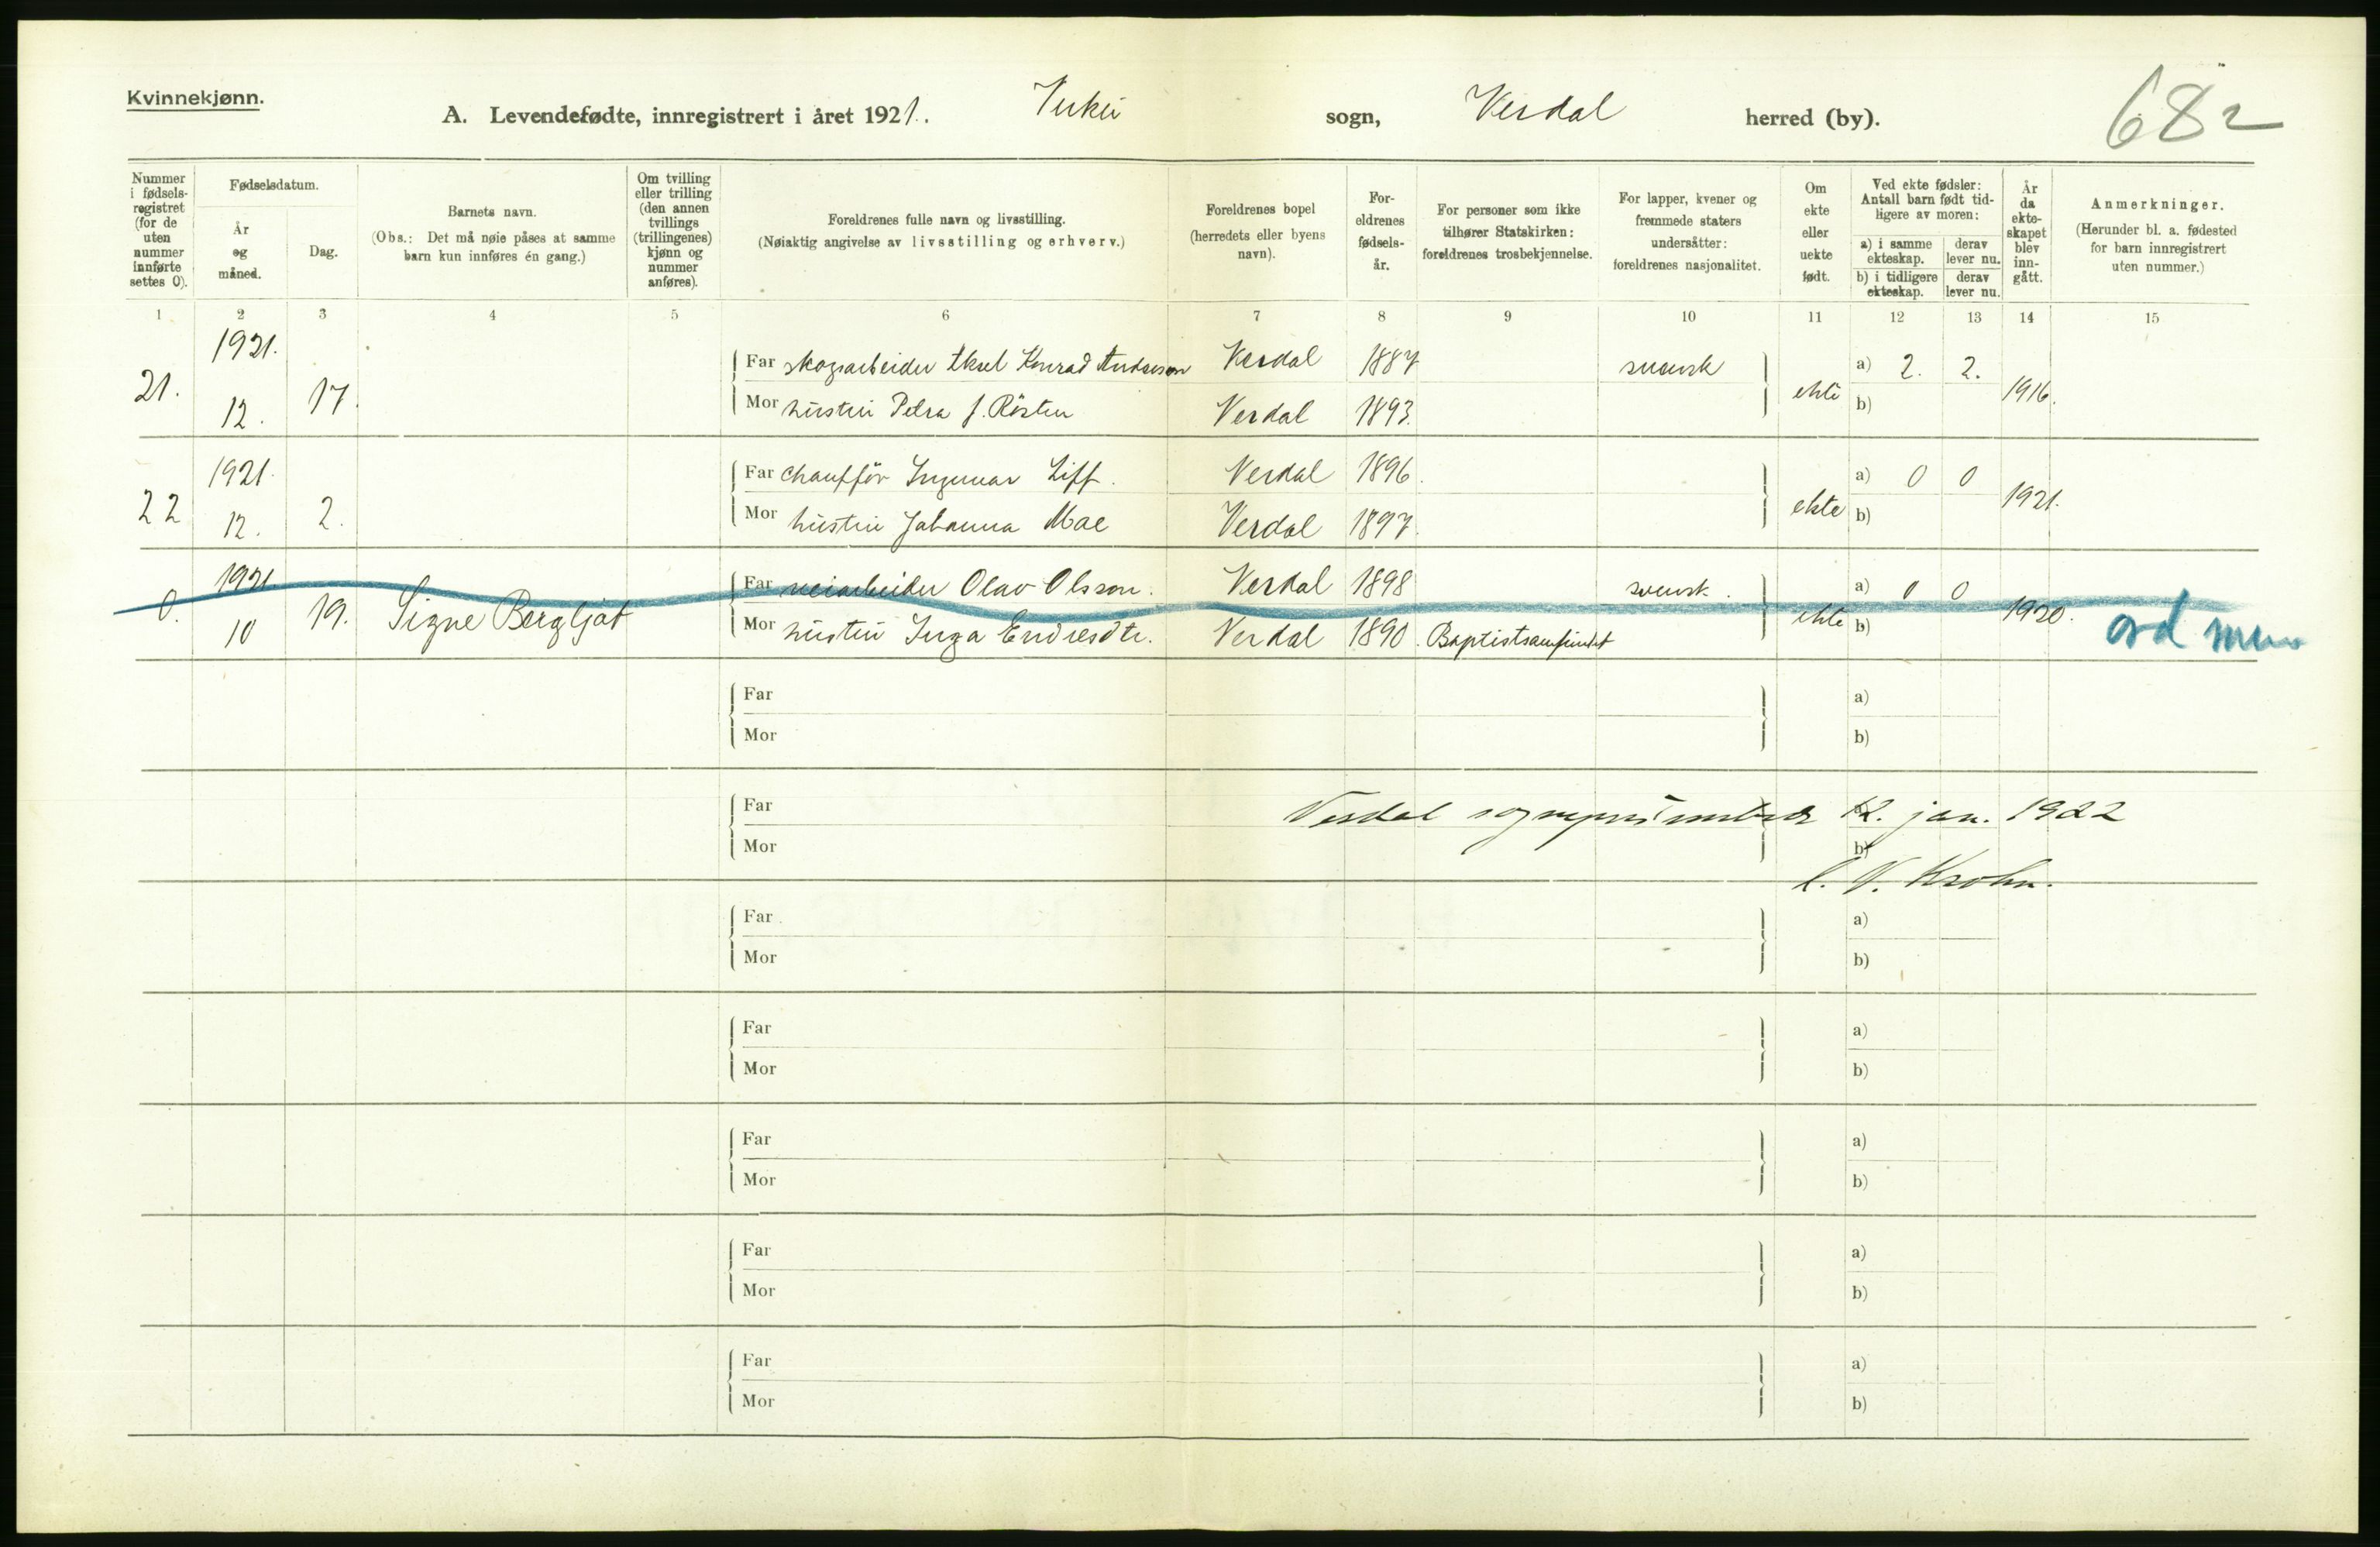 Kvinnekjønn.
A. Levendefødte, innregistrert i året 1921. Vuku sogn, Verdal herred (by).
682
Nummer i fødselsregistret (for de uten nummer innførte settes 0).
Fødselsdatum.
År og måned.
Dag.
Barnets navn.
(Obs.: Det må nøie påses at samme barn kun innføres én gang.)
Om tvilling eller trilling (den annen tvillings (trillingenes) kjønn og nummer anføres).
Foreldrenes fulle navn og livsstilling.
(Nøiaktig angivelse av livsstilling og erhverv.)
Foreldrenes bopel (herredets eller byens navn).
Foreldrenes fødselsår.
For personer som ikke tilhører Statskirken: foreldrenes trosbekjennelse.
For lapper, kvener og fremmede staters undersåtter: foreldrenes nasjonalitet.
Om ekte eller uekte født.
Ved ekte fødsler: Antall barn født tidligere av moren:
a) i samme ekteskap. derav lever nu.
b) i tidligere ekteskap. derav lever nu.
År da ekteskapet blev inngått.
Anmerkninger.
(Herunder bl. a. fødested for barn innregistrert uten nummer.)
1 2 3 4 5 6 7 8 9 10 11 12 13 14 15
21. 1921. 12. 17. Far skogsarbeider Aksel Konrad Anderson Verdal 1887 svensk ekte a) 2. 2. 1916.
Mor hustru Petra f. Rösten Verdal 1893. b)
22 1921. 12. 2. Far chaufför Ingemar Liff. Verdal 1896. ekte a) 0 0 1921.
Mor hustru Johanna Moe Verdal 1897. b)
0. 1921 10 19. Signe Bergljot Far veiarbeider Olav Olsson. Verdal 1898 svensk. ekte a) 0 0 1920.
Mor hustru Inga Endresdtr. Verdal 1890. Baptistsamfundet b)
Far a)
Mor b)
Far Verdal 12. jan. 1922
Mor b)
C. V. Krohn.
Far a)
Mor b)
Far a)
Mor b)
Far a)
Mor b)
Far a)
Mor b)
Far a)
Mor b)